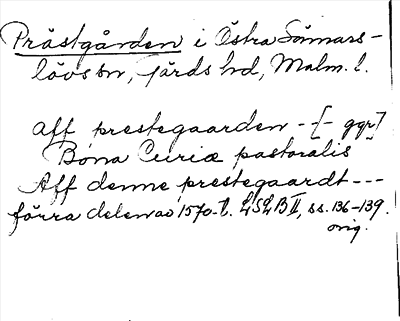 Prästgården i Östra Sönnars-
lövs sn, Järds hd, Malm. l.
Aff prestegaarden - [- ggr]
"Bona Curiæ pastoralis"
Aff denne prestegaardt ---
förra delen av 1570-t. LSLB II, ss. 136-139.
orig.